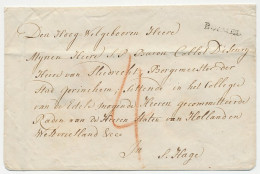 Den Hoog Welgeboren Heere
Mynen Heere J. J. Baron Collot D'Escury
Heere van Sliedrecht Borgemeester der
Stad Gorinchem, sittende in het Collegie
van de Edele mogende Heeren gecommitteerde
Raden van de Heeren Staten van Holland en
Westvriesland
In
S. Hage
4